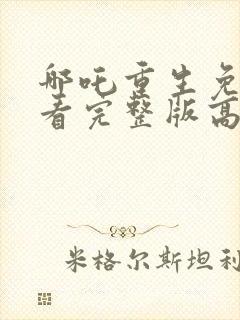 哪吒重生免
看完整版高
米格尔斯坦利